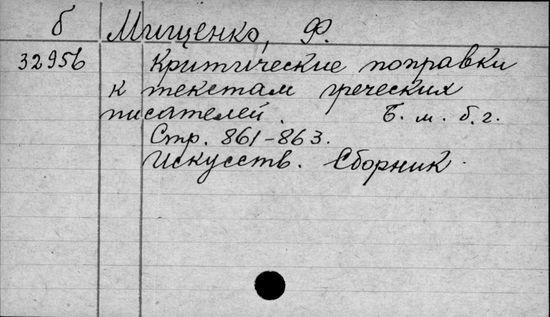 б Мищенко, Ф.
32956 Критические поправки
к текстам греческих
писателей. Б. м. б. г.
Стр. 861-863.
Искусств. Сборник.